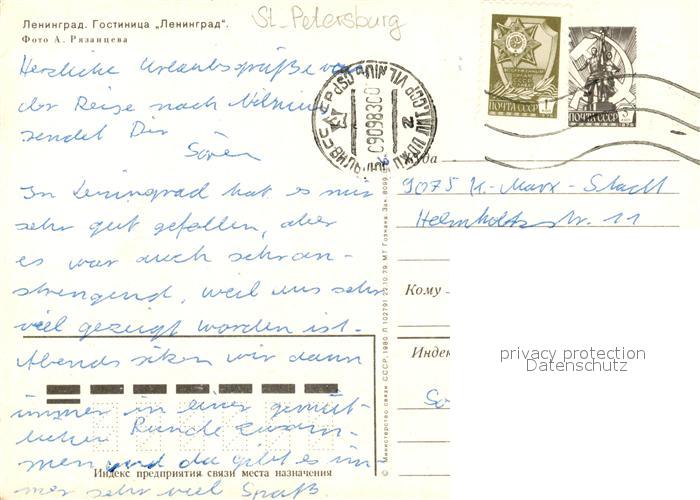 Ленинград. Гостиница „Ленинград".
Фото А. Рязанцева
St. Petersburg
ПОЧТА СССР 1
ПОЧТА СССР
Herzliche Urlaubsgrüße von
der Reise nach Vilnius
sendet Dir
Sören
In Leningrad hat es mir
sehr gut gefallen, aber
es war auch sehr an-
strengend, weil uns sehr
viel gezeigt worden ist.
Abends sitzen wir dann
immer in einer gemüt-
lichen Runde zusam-
men und da gibt es im-
mer sehr viel Spaß
Куда
9075 K.-Marx-Stadt
Helmholtzstr. 11
Кому
Индекс предприятия связи места назначения
© Министерство связи СССР, 1980. Л 102791 22.10.79. МТ Гознака. Зак. 8099.
privacy protection
Datenschutz